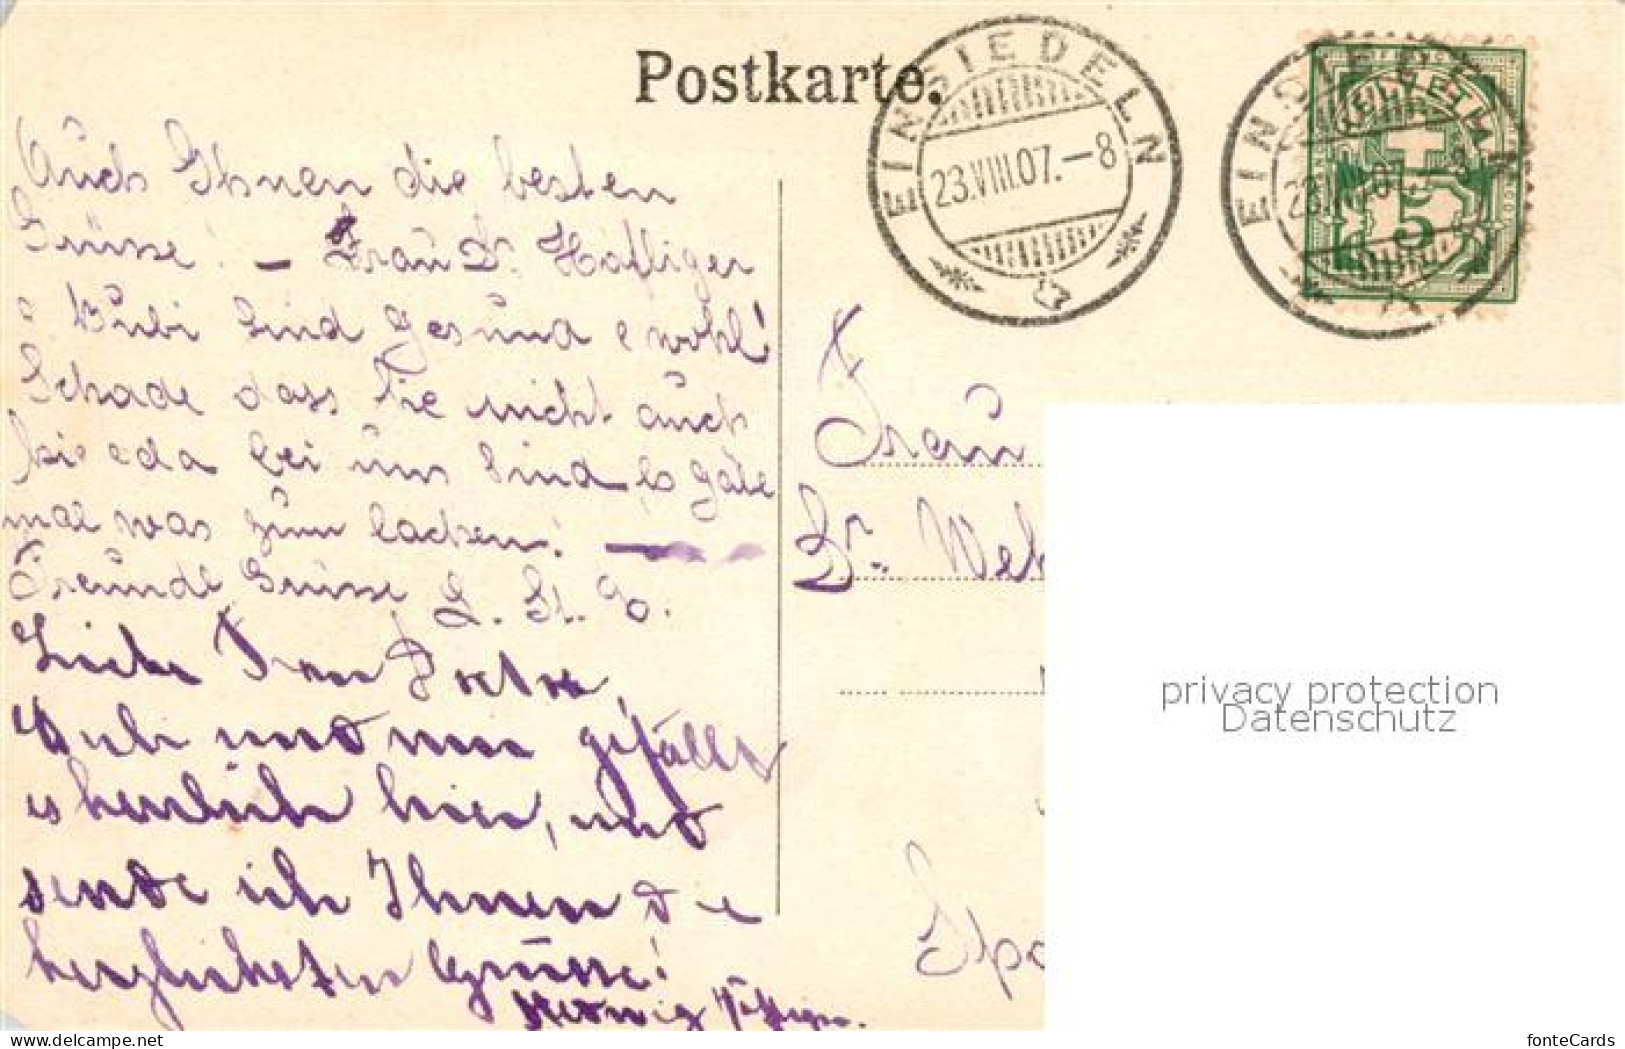 Postkarte.
EINSIEDELN
23.VIII.07.–8
EINSIEDELN
HELVETIA
5
Auch Ihnen die besten
Grüsse! – Frau Dr. Häfliger
& Bubi sind gesund & wohl!
Schade dass Sie nicht auch
hie & da bei uns sind, es gäbe
mal was zum lachen!
Freundl. Grüsse L. St.
Liebe Frau Doktor,
Bubi und mir gefällt
es herrlich hier, und
sende ich Ihnen die
herzlichsten Grüsse!
Hedwig Häfliger.
Frau
Dr. Web
privacy protection
Datenschutz
www.ansichtskartenversand.com
fonteCards